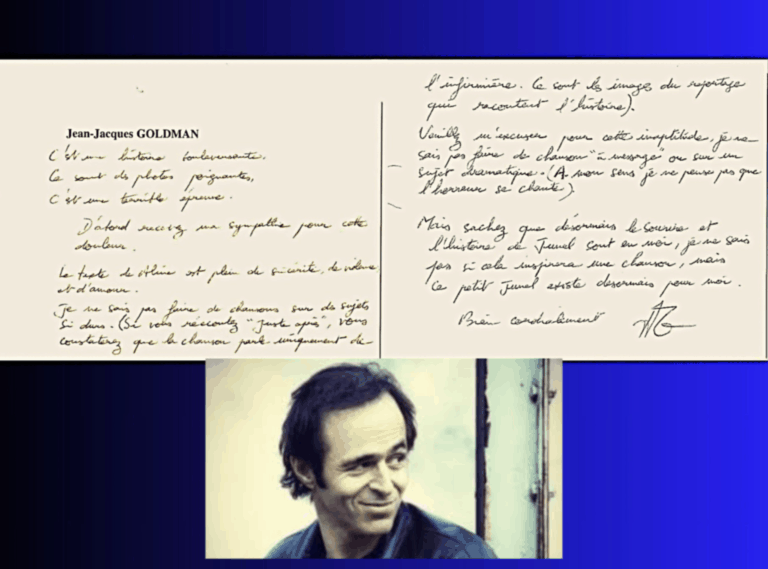 Jean-Jacques GOLDMAN
C'est une histoire bouleversante.
Ce sont des photos poignantes,
C'est une terrible épreuve.
D'abord recevez ma sympathie pour cette
douleur.
Le texte de est plein de sincérité, de
et d'amour.
Je ne sais pas faire de chansons sur des sujets
si durs. (Si vous réécoutez "Juste après", vous
constaterez que la chanson parle uniquement de
l'infirmière. Ce sont les images du reportage
qui racontent l'histoire).
Veuillez m'excuser pour cette inaptitude, je ne
sais pas faire de chanson "à message" ou sur un
sujet dramatique. (A mon sens je ne pense pas que
l'horreur se chante)
Mais sachez que désormais le sourire et
l'histoire de Junel sont en moi, je ne sais
pas si cela inspirera une chanson, mais
ce petit Junel existe désormais pour moi.
Bien cordialement